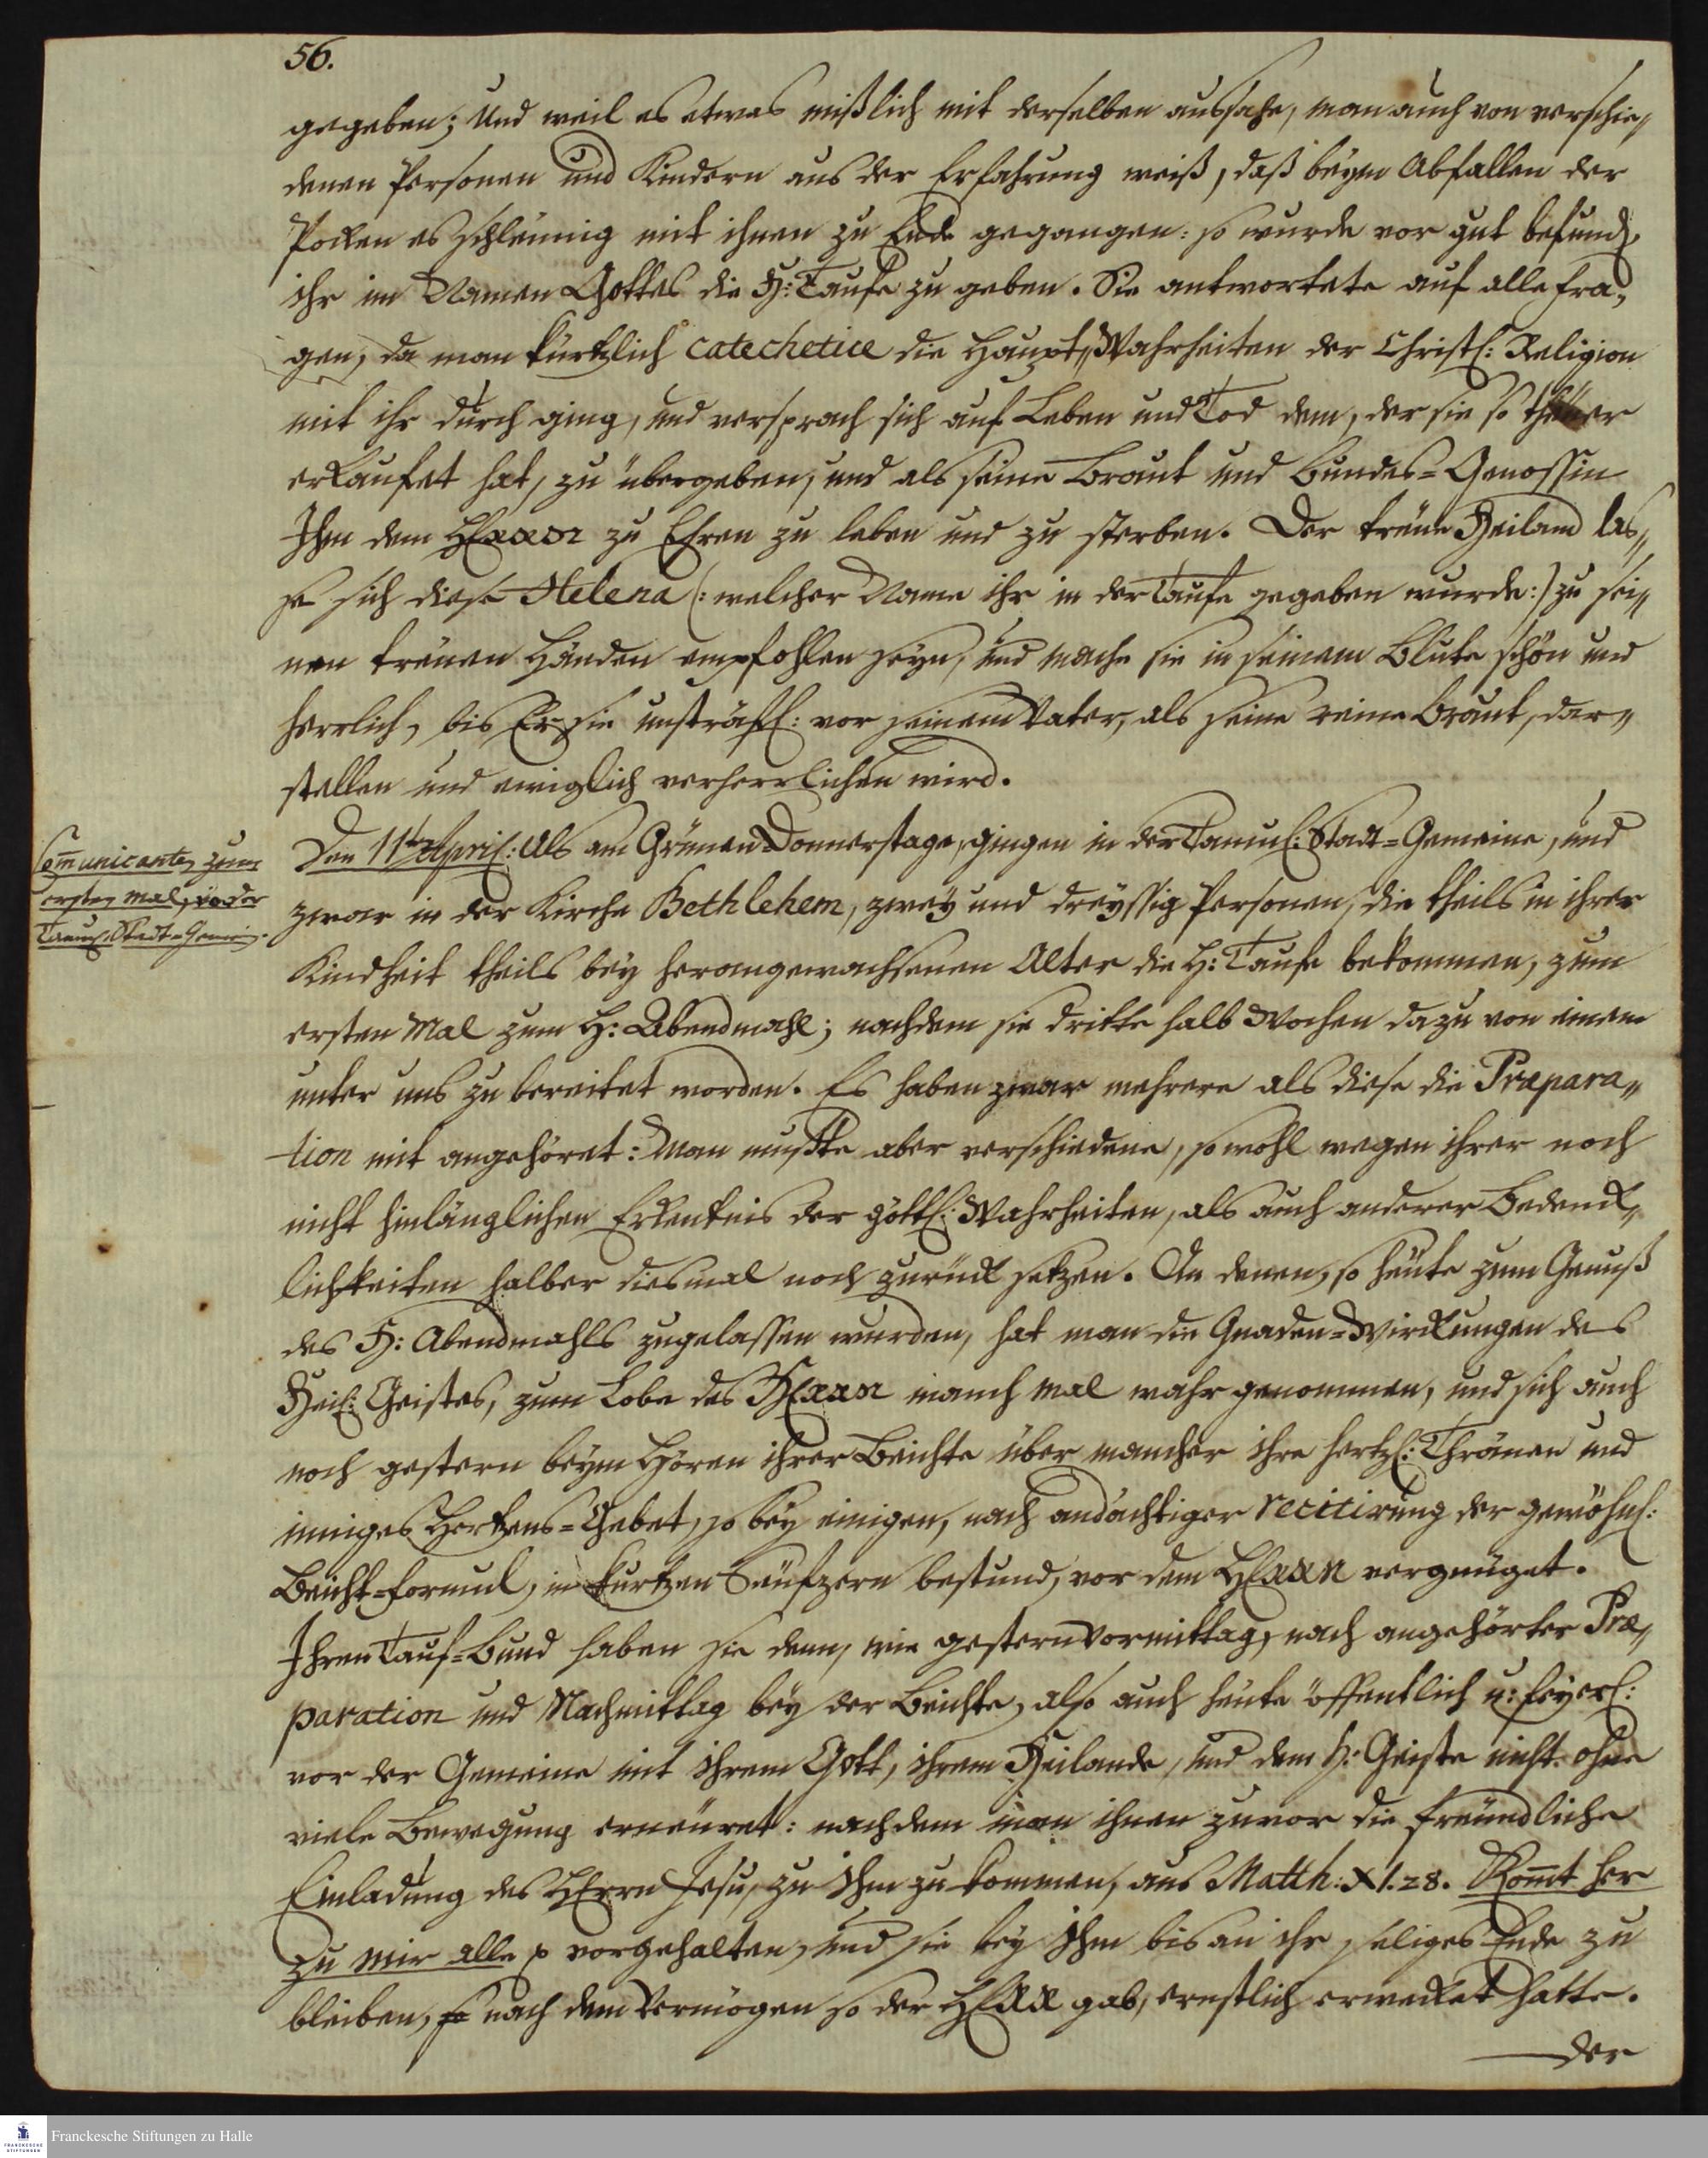 56.
gegeben; Und weil es etwas mißlich mit derselben aussahe, man auch von verschie„
denen Personen und Kindern aus der Erfahrung weiß, daß beym Abfallen der
Pocken es schleunig mit ihnen zu Ende gegangen: so wurde vor gut befund.
ihr im Namen Gottes die H: Taufe zu geben. Sie antwortete auf alle Fra„
gen, da man kürtzlich catechetice die Haupt„Wahrheiten der Christl: Religion
mit ihr durch ging, und versprach sich auf Leben und Tod dem, der sie so theuer
erkaufet hat, zu übergeben, und als seine Braut und Bundes=Genossin
Ihm dem HErrn zu Ehren zu leben und zu sterben. Der treue Heiland las„
se sich diese Helena (: welcher Name ihr in der Taufe gegeben wurde:) zu sei„
nen treuen Händen empfohlen seyn, und mache sie in seinem Blute schön und
herrlich, bis Er sie unsträfl: vor seinem Vater, als seine reine Braut, dar„
stellen und ewiglich verherrlichen wird.
Communicanten zum
ersten mal, in der
Tamul. Stadt=Gemein.
Den 11ten April: Als am Grünen=Donnerstage, gingen in der Tamul: Stadt=Gemeine, und
zwar in der Kirche Bethlehem, zwey und dreyssig Personen, die theils in ihrer
Kindheit theils bey herangewachsenen Alter die H: Taufe bekommen, zum
ersten Mal zum H: Abendmahl; nachdem sie dritte halb Wochen dazu von einem
unter uns zu bereitet worden. Es haben zwar mehrere als diese die Præpara„
tion mit angehöret: Man mußte aber verschiedene, so wohl wegen ihrer noch
nicht hinlänglichen Erkentnis der göttl: Wahrheiten, als auch anderer Bedenck„
lichkeiten halber diesmal noch zurück setzen. An denen, so heute zum Genuß
des H: Abendmahls zugelassen wurden, hat man die Gnaden=Wirckungen des
Heil: Geistes, zum Lobe des HErrn manch mal wahr genommen, und sich auch
noch gestern beym Hören ihrer Beichte über mancher ihre hertzl: Thränen und
inniges Hertzens=Gebet, so bey einigen, nach andächtiger recitirung der gewöhnl:
Beicht=Formul, in kurtzen Seufzern bestund, vor dem HErrn vergnüget.
Ihren Tauf=Bund haben sie denn, wie gestern Vormittag, nach angehörter Præ„
paration und Nachmittag bey der Beichte, also auch heute öffentlich u: feyerl:
vor der Gemeine mit ihrem Gott, ihrem Heilande, und dem H: Geiste nicht ohne
viele Bewegung erneuret: nachdem man ihnen zuvor die freundliche
Einladung des HErrn Jesu, zu Ihm zu kommen, aus Matth: XI. 28. Komt her
zu mir alle p vorgehalten, und sie bey Ihm bis an ihr seliges Ende zu
bleiben, so nach dem Vermögen so der HErr gab, ernstlich erwecket hatte.
der
Franckesche Stiftungen zu Halle